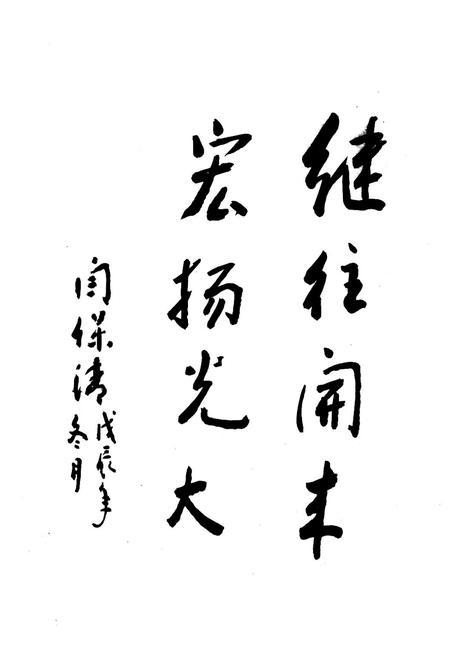 继往开来
宏扬光大
闫保清
戊辰年
冬月